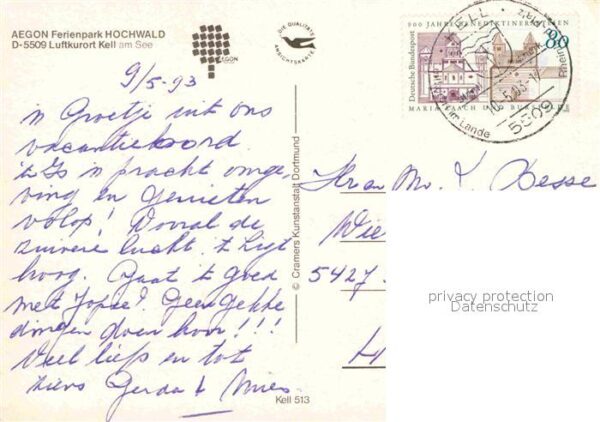 AEGON Ferienpark HOCHWALD
D-5509 Luftkurort Kell am See
AEGON
DIE QUALITÄTS
ANSICHTSKARTE
9/5-93
'n Groetje uit ons
vacantieoord.
't Is 'n pracht omge,
ving en genieten
volop! Vooral de
zuivere lucht. 't ligt
hoog. Gaat 't goed
met Jopie? Geen gekke
dingen doen hoor!!!
Veel liefs en tot
ziens Gerda & Mies.
© Cramers Kunstanstalt Dortmund
Kell 513
900 JAHRE BENEDIKTINERABTEIEN
80
Deutsche Bundespost
MARIA LAACH UND BURSFELDE
KELL
im Lande
5509
Besse
Wie
5427
privacy protection
Datenschutz